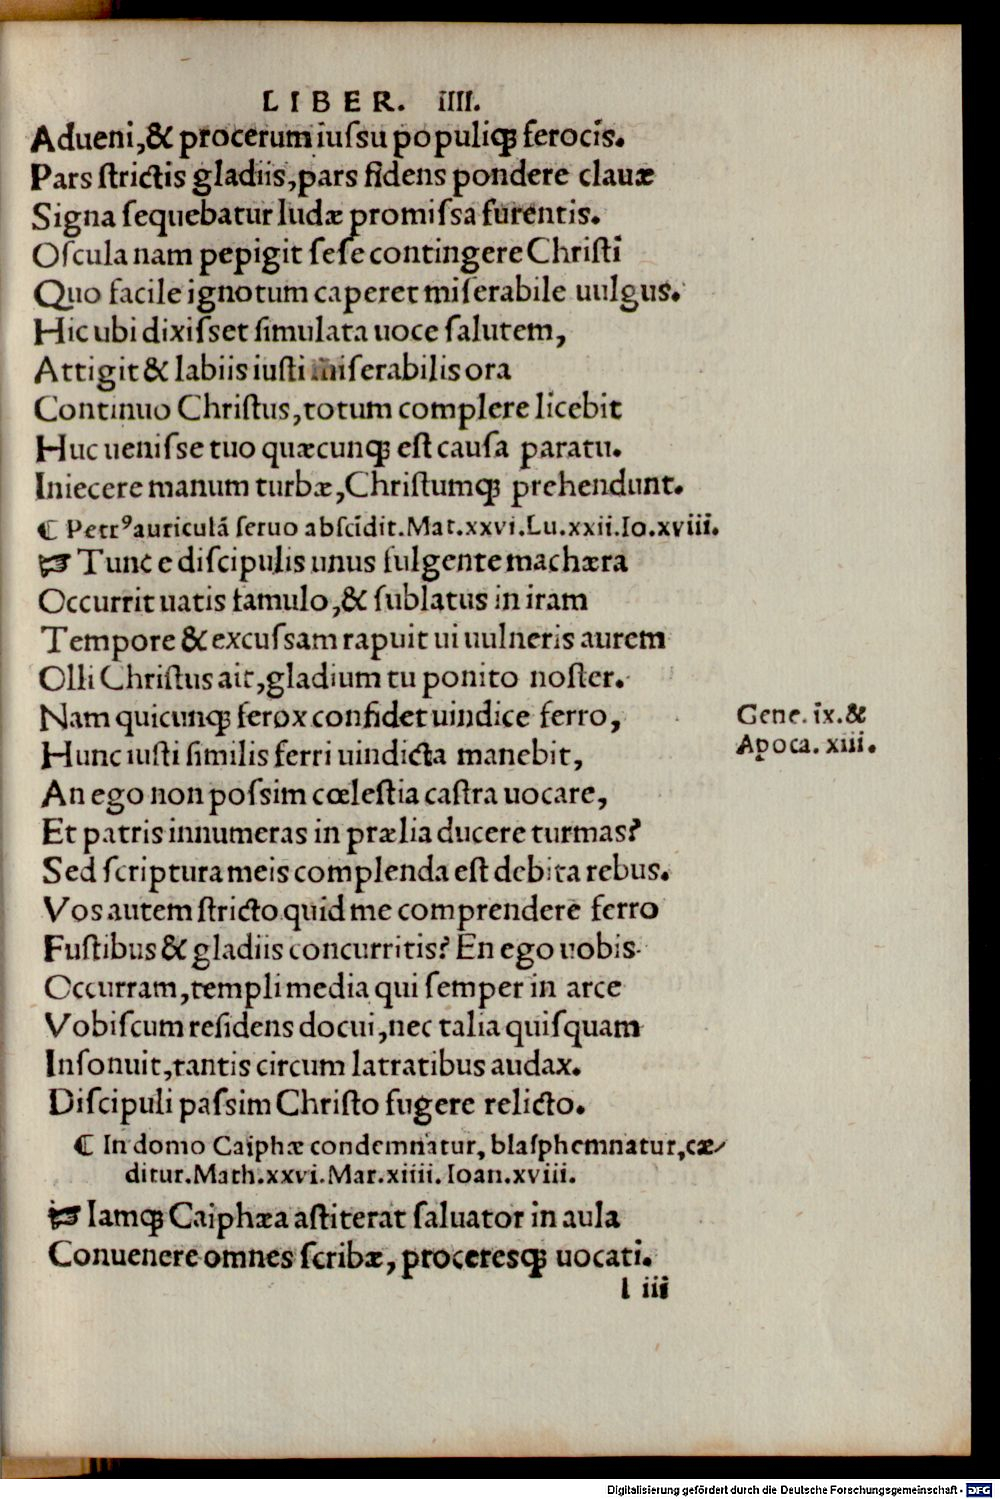 LIBER. IIII.
Adueni,& procerum iuſsu populiqꝫ ferocis.
Pars ſtrictis gladiis,pars fidens pondere clauæ
Signa ſequebatur Iudæ promiſsa furentis.
Oſcula nam pepigit ſeſe contingere Chriſti
Quo facile ignotum caperet miſerabile uulgus.
Hic ubi dixiſset ſimulata uoce ſalutem,
Attigit & labiis iuſti miſerabilis ora
Continuo Chriſtus,totum complere licebit
Huc ueniſse tuo quæcunqꝫ eſt cauſa paratu.
Iniecere manum turbæ,Chriſtumqꝫ prehendunt.
¶ Petrꝰ auriculā ſeruo abſcidit.Mat.xxvi.Lu.xxii.Io.xviii.
☞ Tunc e diſcipulis unus fulgente machæra
Occurrit uatis famulo,& ſublatus in iram
Tempore & excuſsam rapuit ui uulneris aurem
Olli Chriſtus ait,gladium tu ponito noſter.
Nam quicunqꝫ ferox confidet uindice ferro,
Gene. ix.&
Apoca. xiii.
Hunc iuſti ſimilis ferri uindicta manebit,
An ego non poſsim cœleſtia caſtra uocare,
Et patris innumeras in prælia ducere turmas?
Sed ſcriptura meis complenda eſt debita rebus.
Vos autem ſtricto quid me comprendere ferro
Fuſtibus & gladiis concurritis? En ego uobis
Occurram,templi media qui ſemper in arce
Vobiſcum reſidens docui,nec talia quiſquam
Inſonuit,tantis circum latratibus audax.
Diſcipuli paſsim Chriſto fugere relicto.
¶ In domo Caiphæ condemnatur, blaſphemnatur,cæ/
ditur.Math.xxvi.Mar.xiiii.Ioan.xviii.
☞ Iamqꝫ Caiphæa aſtiterat ſaluator in aula
Conuenere omnes ſcribæ, proceresqꝫ uocati.
l iii
Digitalisierung gefördert durch die Deutsche Forschungsgemeinschaft - DFG